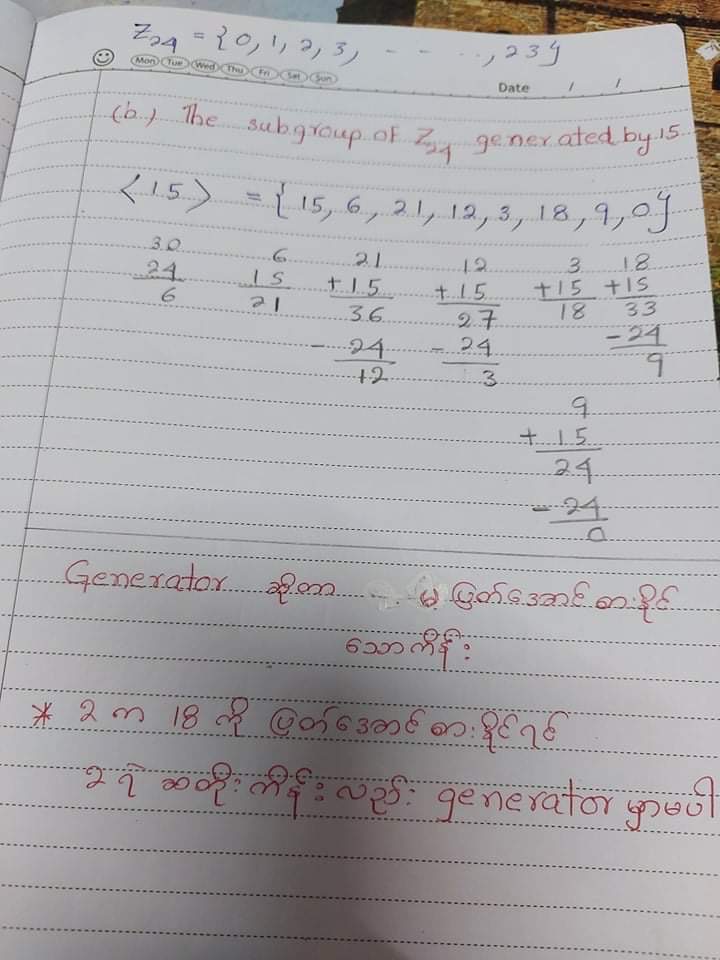 Z₂₄ = {0, 1, 2, 3, - - - .., 23}
Mon Tue Wed Thu Fri Sat Sun
Date / /
(b.) The subgroup of Z₂₄ generated by 15
<15> = {15, 6, 21, 12, 3, 18, 9, 0}
30 6 21 12 3 18
24 15 +15 +15 +15 +15
6 21 36 27 18 33
- 24 - 24 - 24
12 3 9
9
+ 15
24
- 24
0
Generator ဆိုတာ မှ ပြတ်အောင် စားနိုင်
သောကိန်း
* 2 က 18 ကို ပြတ်အောင် စားနိုင်ရင်
2 ရဲ့ ဆတိုးကိန်းလည်း generator မှာမပါ